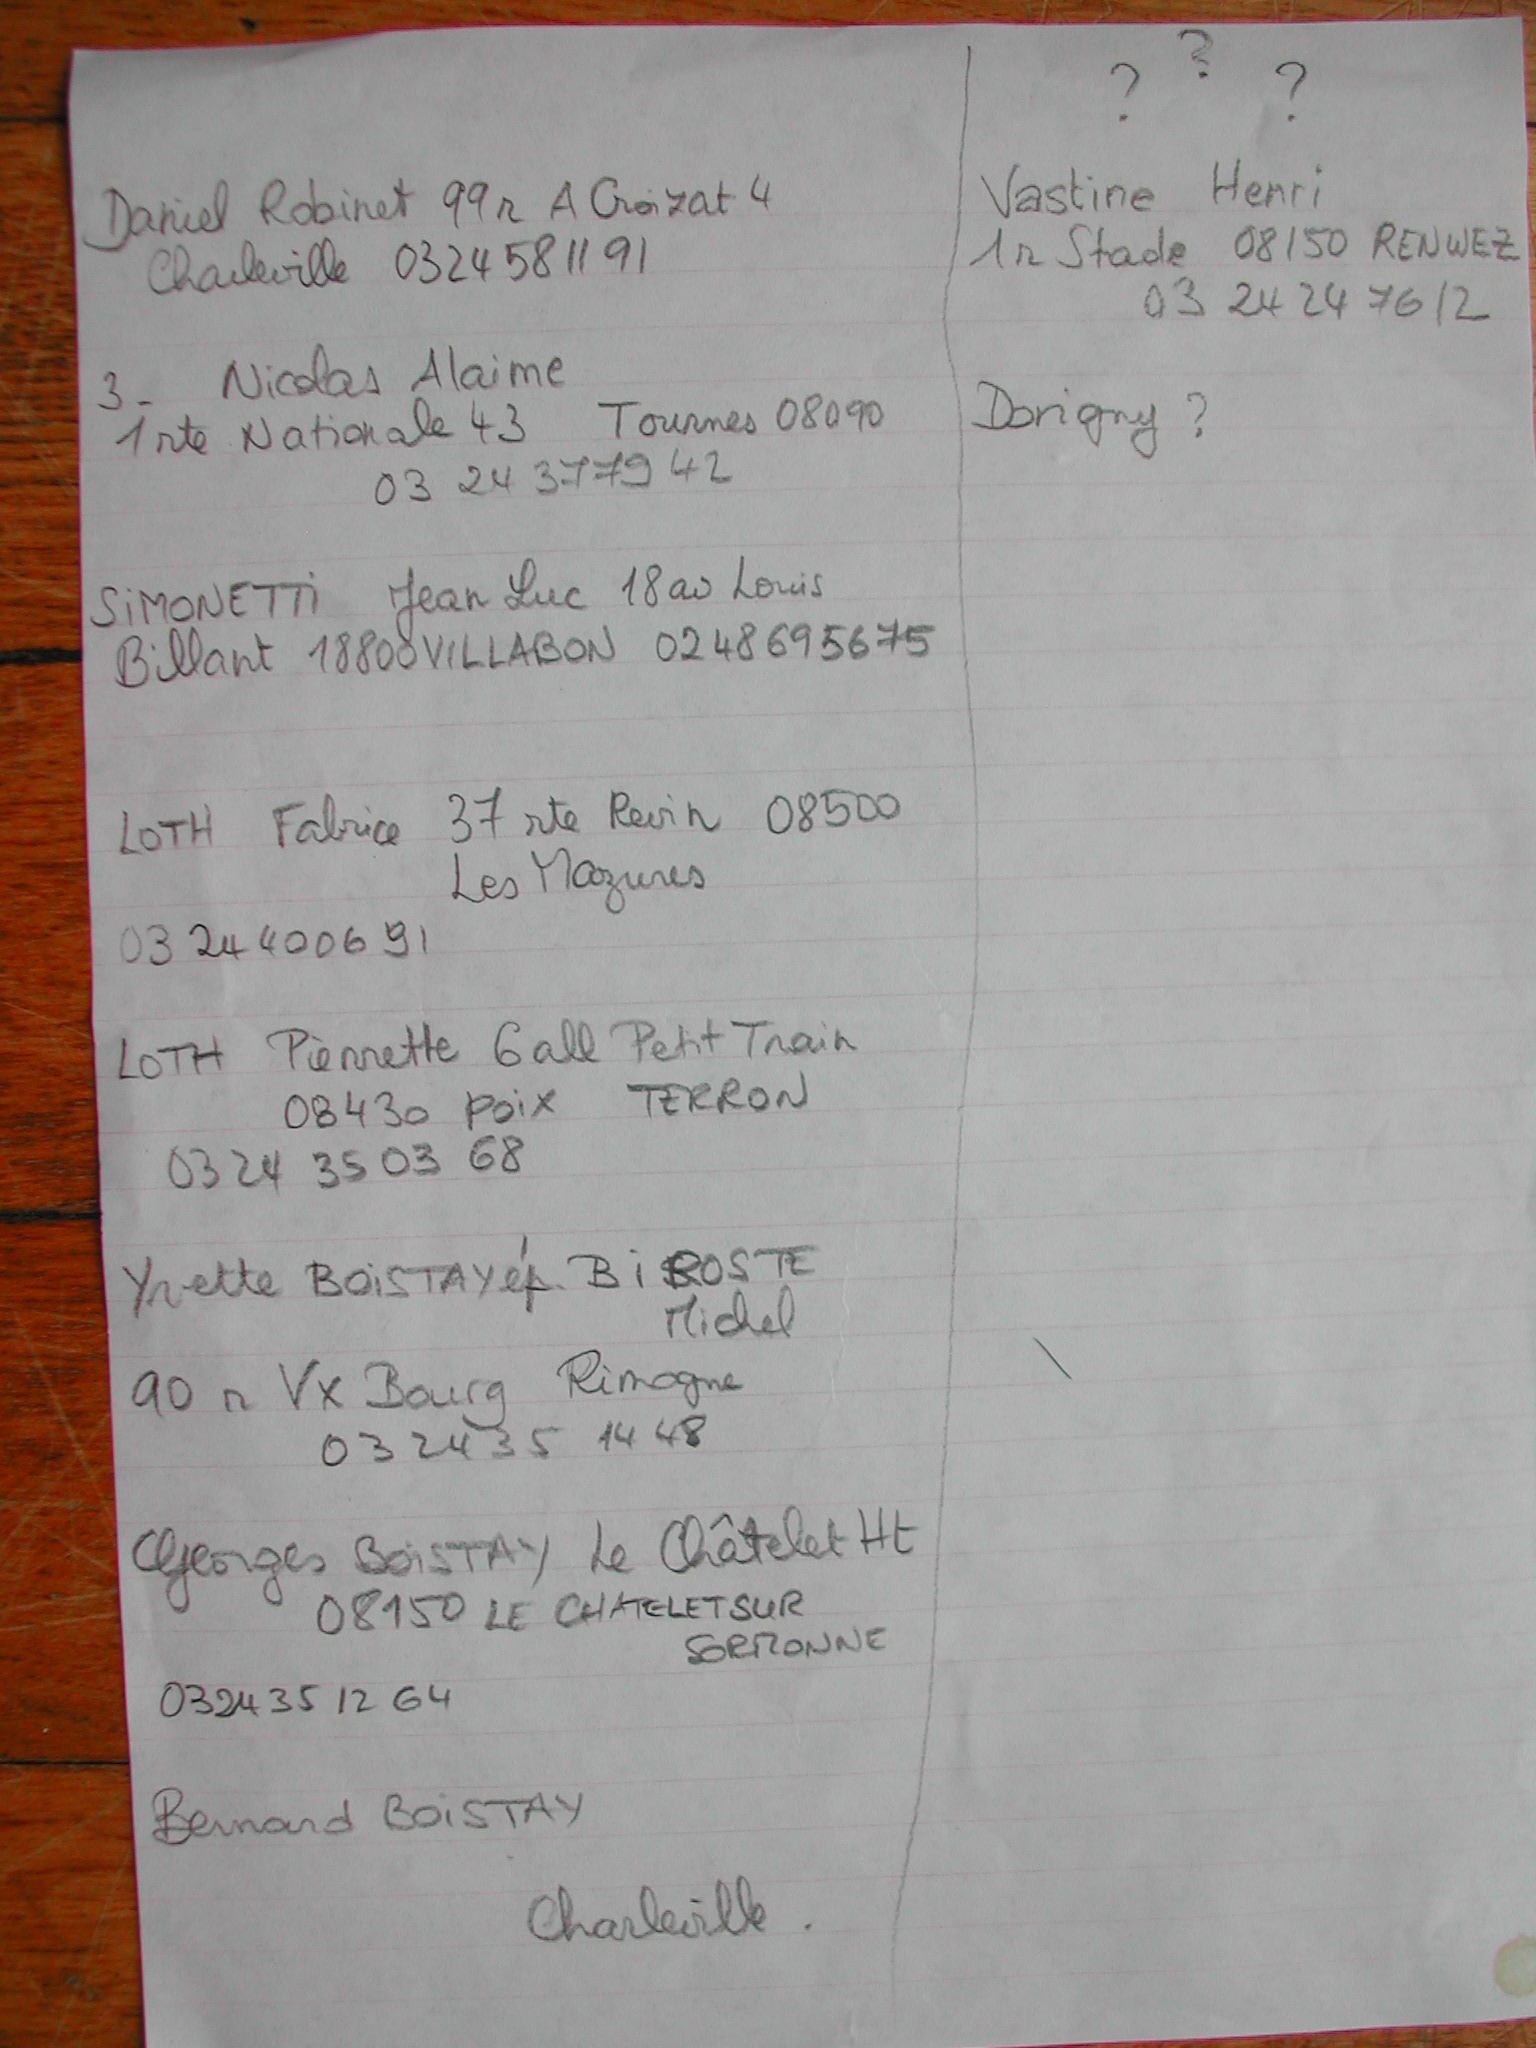 Daniel Robinet 99 r A Croizat 4
Charleville 03 24 58 11 91
3- Nicolas Alaime
1 rte Nationale 43 Tournes 08090
03 24 377942
SiMONETTi Jean Luc 18 av Louis
Billant 18800 VILLABON 0248695675
LOTH Fabrice 37 rte Revin 08500
Les Mazures
03 24 400691
LOTH Pierrette 6 all Petit Train
08430 Poix TERRON
03 24 35 03 68
Yvette BOiSTAY ép. Bi ROSTE
Michel
90 r Vx Bourg Rimogne
03 24 35 14 48
Georges BOiSTAY Le Châtelet Ht
08150 LE CHATELET SUR
SORMONNE
0324 35 12 64
Bernard BOiSTAY
Charleville .
? ? ?
Vastine Henri
1 r Stade 08150 RENWEZ
03 24 24 76 12
Dorigny ?